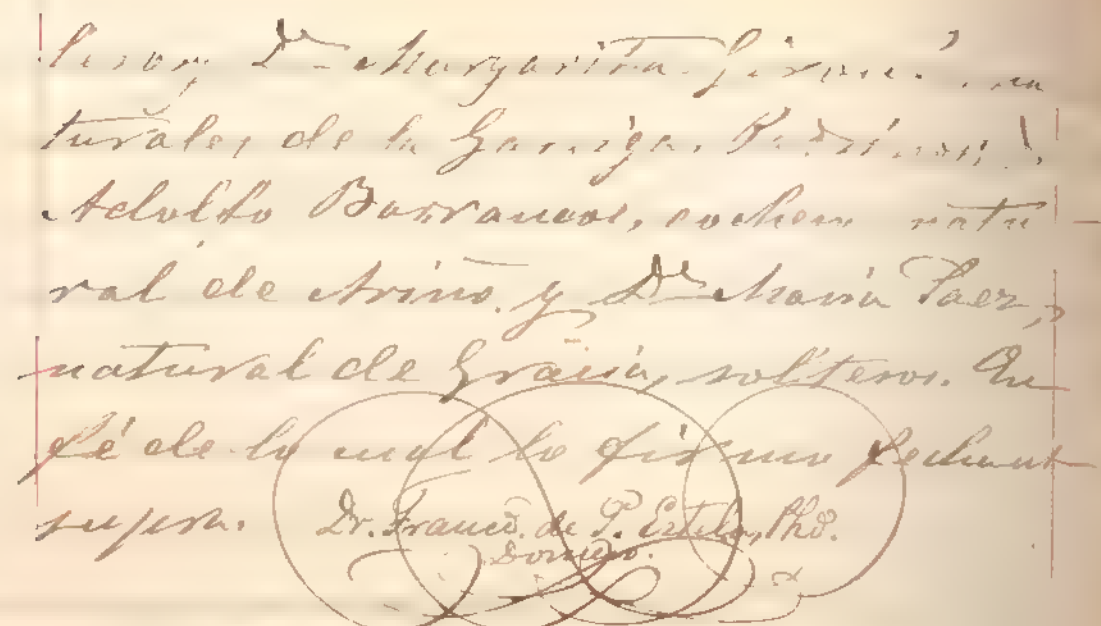 y Dª Margarita Gironé, na
turales de la Garriga. Padrinos D.
Adolfo Barrancos, cochero natu
ral de Ariño y Dª Maria Paez,
natural de Gracia, solteros. En
fé de lo cual lo firmo fecha ut
supra. Dr. Franco. de P. Estela, Pbo.